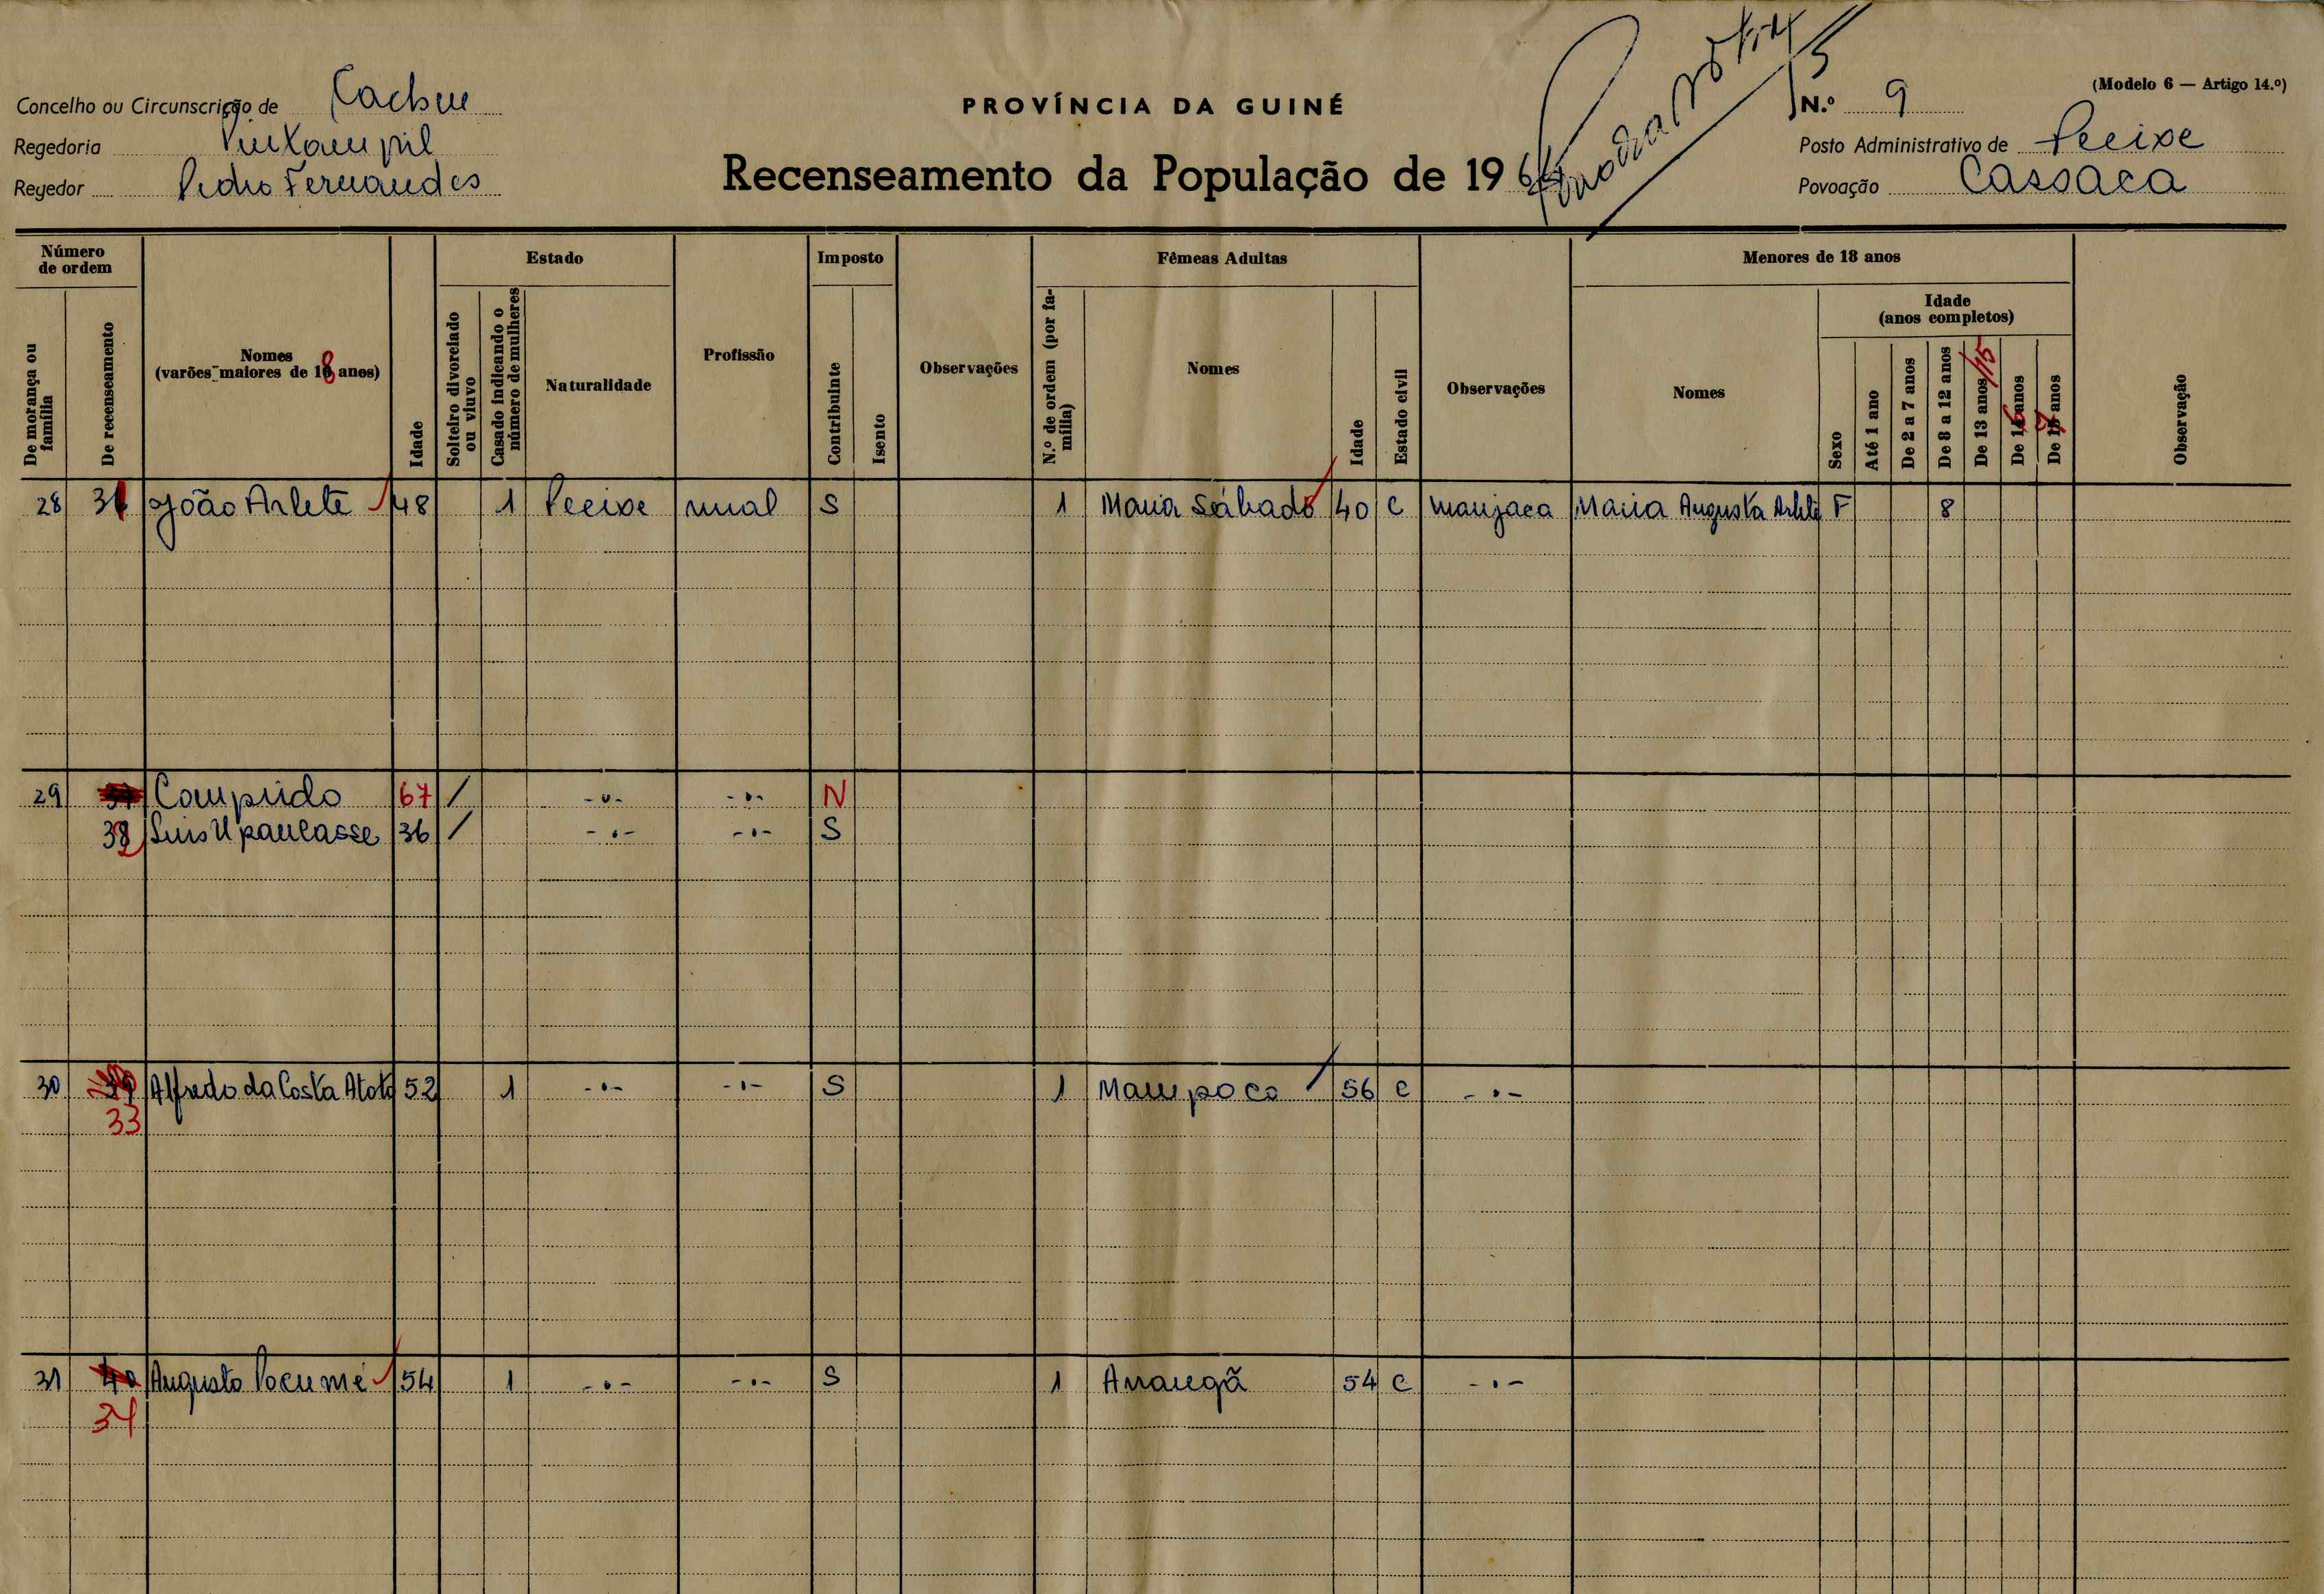 (Modelo 6 — Artigo 14.º)
Concelho ou Circunscrição de Cacheu
PROVÍNCIA DA GUINÉ
N.º 9
Regedoria
Posto Administrativo de Pecixe
Regedor Pedro Fernandes
Recenseamento da População de 1964
Povoação Cassaca
Número de ordem
Estado
Imposto
Fêmeas Adultas
Menores de 18 anos
Idade (anos completos)
De morança ou família
De recenseamento
Nomes (varões maiores de 18 anos)
Idade
Solteiro divorciado ou viuvo
Casado indicando o número de mulheres
Naturalidade
Profissão
Contribuinte
Isento
Observações
N.º de ordem (por família)
Nomes
Idade
Estado civil
Observações
Nomes
Sexo
Até 1 ano
De 2 a 7 anos
De 8 a 12 anos
De 13 anos/15
De 16 anos
De 17 anos
Observação
28 31 João Arlete 48 1 Pecixe rural S 1 Maria Sábado 40 C manjaca Maria Augusta Arlete F 8
29 Comprido 67 / -"- -"- N
32 Luis Upacasse 36 / -"- -"- S
30 39 Alfredo da Costa Atoto 52 1 -"- -"- S 1 Mampoco 56 C -"-
33
31 40 Augusto Pocumé 54 1 -"- -"- S 1 Arraugã 54 C -"-
34